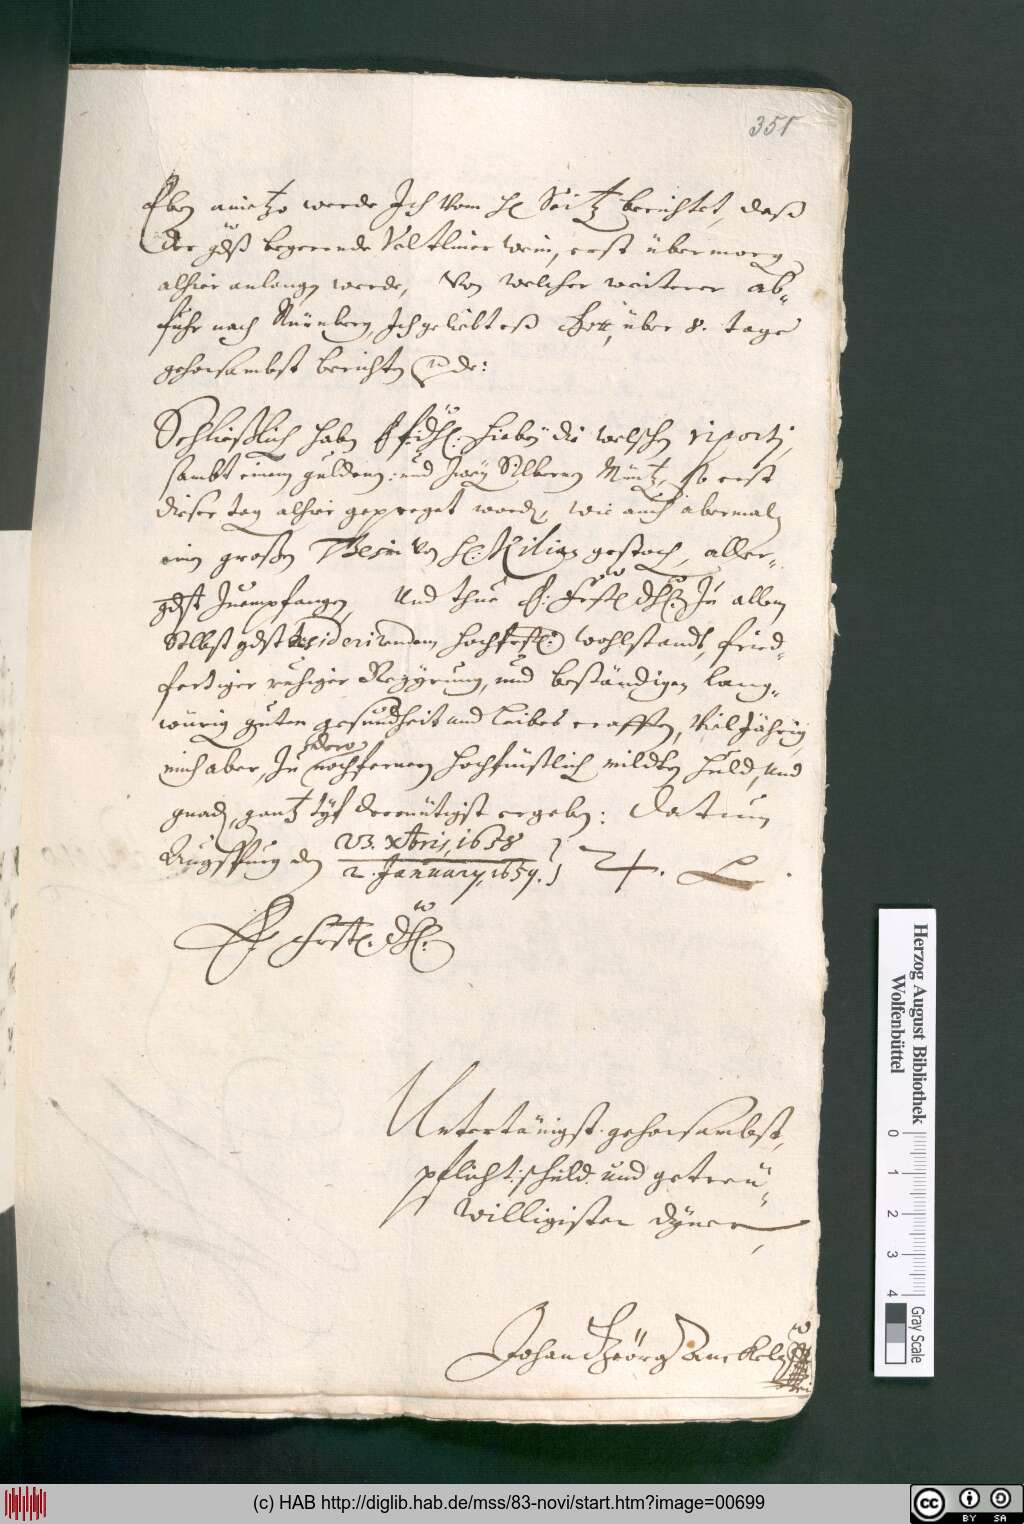 351
Eben anietzo werde Ich vom H. Seitz berichtet, daß
der gdst begerende Valtliner wein, erst übermorg
alhier anlangen werde, Von welcher weiterer ab-
fuhr nach Nürnberg, Ich geliebts Gott, über 8. tage
gehorsambst berichten werde:
Schließlich haben hiebey die welschen riporti,
sambt einem gulden: und zwey Silbernen Müntz, so erst
dieser tag alhier gepreget worden, wie auch abermaln
ein großen Thesin von H. Kilian gestoch, aller-
gdst Zuempfangen, Und thue E: Frstl dhl. Zu allem
Selbst gdst desiderirendem hochfrstl: wohlstandt, fried-
fertiger ruhiger Regyrung, und beständigen lang-
würig guten gesundheit und leibes crafften, Viel Jährig
mich aber, Zu dero
noch fernern hochfürstlich milden huld, und
gnad, gantz tyf demütigst ergeben: Datum
Augspurg den 23. xbris, 1658
2. January, 1659.
E frstl. dhl.
Untertänigst. gehorsambst,
pflicht: schuld. und getreu-
willigister dyner,
Johan Geörg Anckel
Herzog August Bibliothek
Wolfenbüttel
0 1 2 3 4
Gray Scale
(c) HAB http://diglib.hab.de/mss/83-novi/start.htm?image=00699
cc BY SA